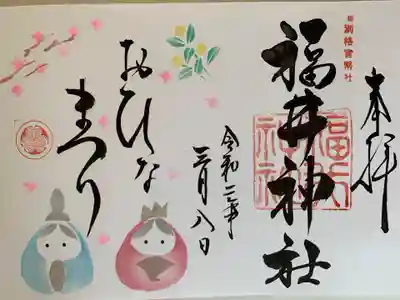 奉拝
旧別格官幣社
福井神社
福井神社
令和二年
三月八日
おひな
まつり